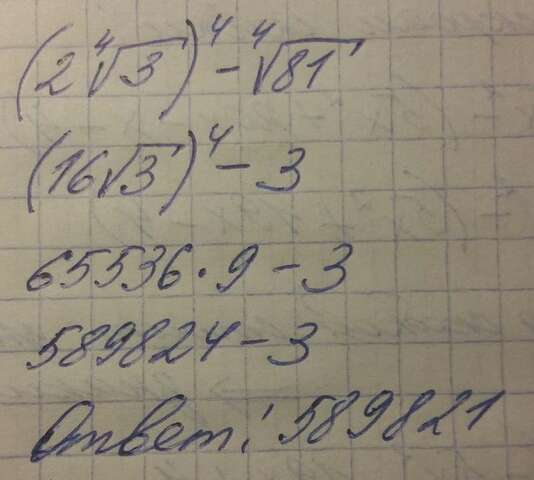 (2⁴√3)⁴ - ⁴√81
(16√3)⁴ - 3
65536 · 9 - 3
589824 - 3
Ответ: 589821